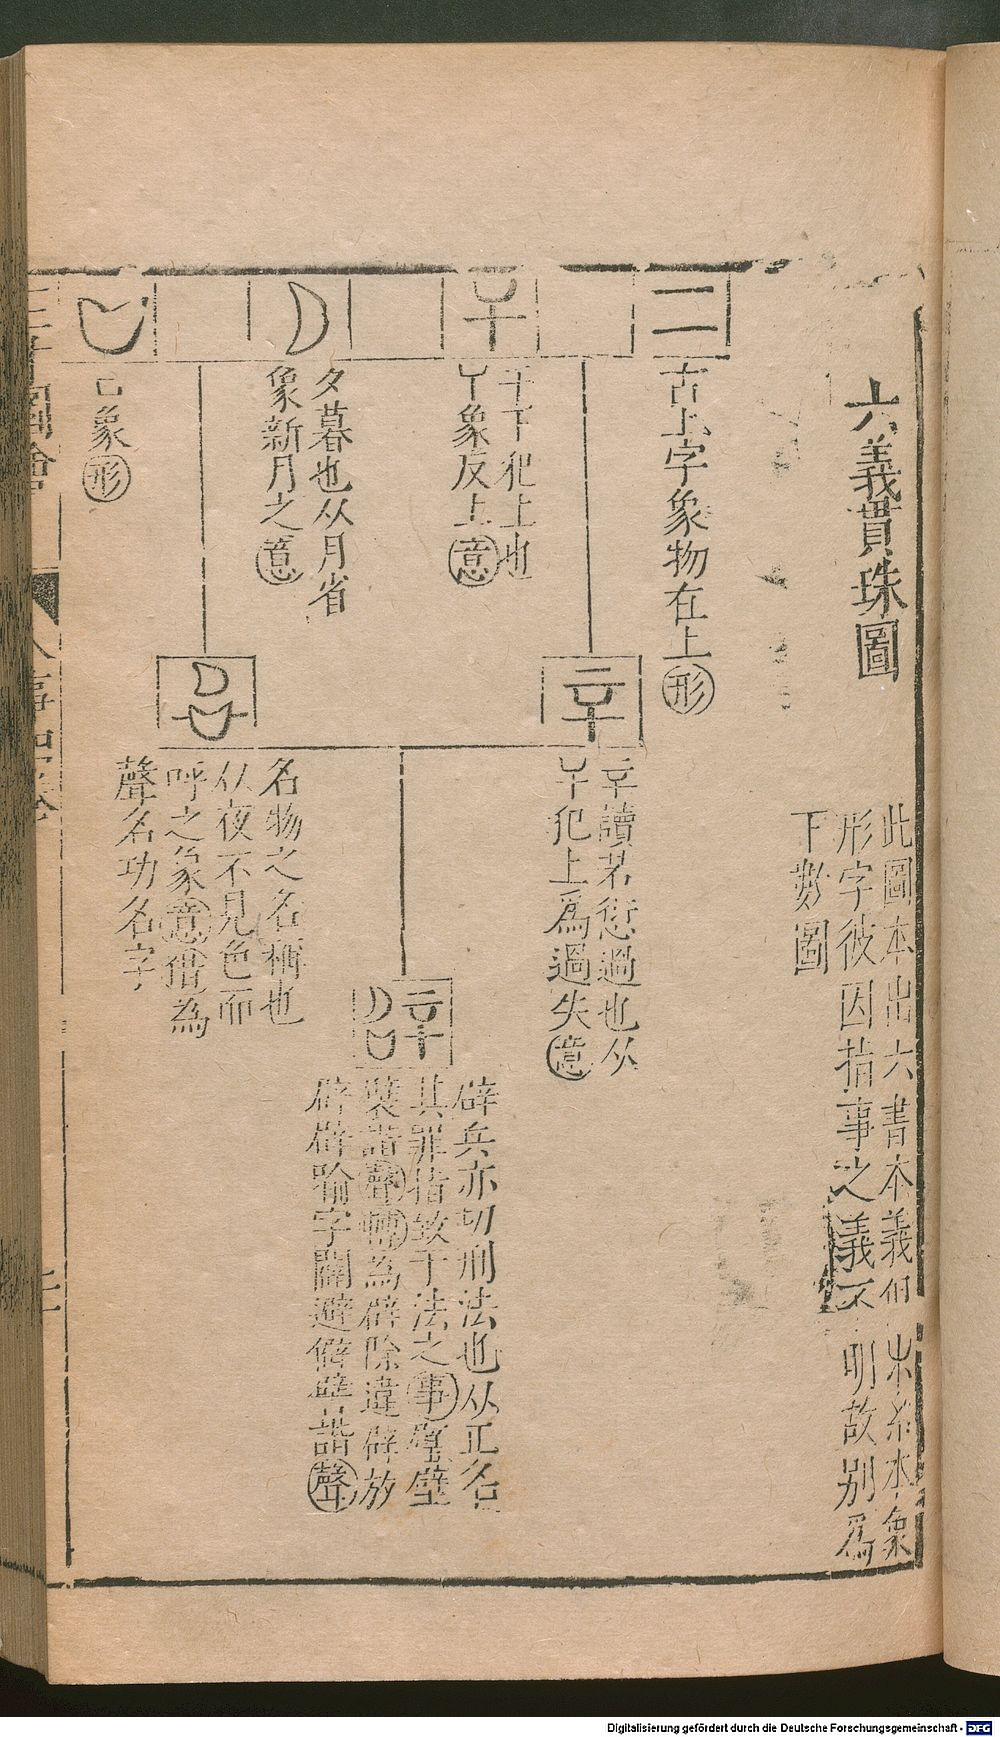 六義貫珠圖
此圖本出六書本義但
形字彼因指事之義不明故別爲
下數圖
二
古上字象物在上形
干下犯上也
象反上意
夕暮也从月省
象新月之意
口象形
䇂讀若愆過也从
干犯上爲過失意
名物之名稱也
从夜不見色而
呼之象意借為
聲名功名字
辟兵亦切刑法也从䇂名
其罪指致于法之事璧壁
襞諧聲轉為辟除違辟放
辟辟喻字闢避僻躄諧聲
三才圖會
人事四卷
Digitalisierung gefördert durch die Deutsche Forschungsgemeinschaft - DFG